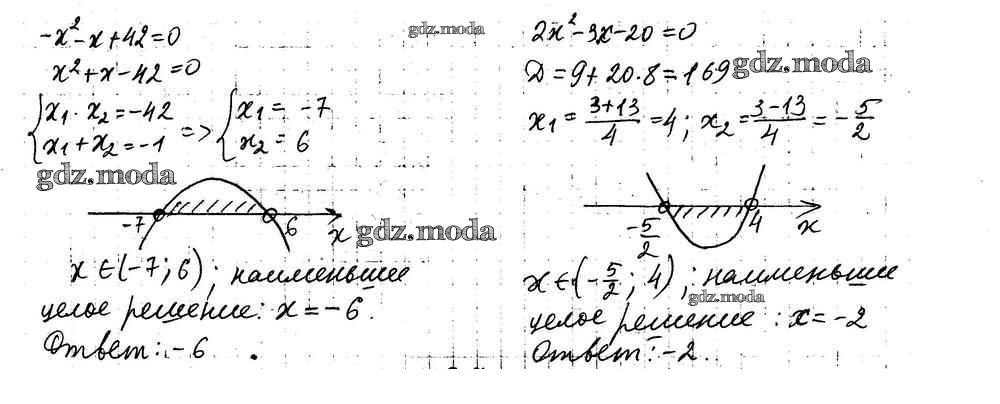 -x² - x + 42 = 0
x² + x - 42 = 0
{ x₁ · x₂ = -42
x₁ + x₂ = -1 => { x₁ = -7
x₂ = 6
gdz.moda
-7 6 x
x ∈ (-7; 6); наименьшее
целое решение: x = -6.
Ответ: -6.
gdz.moda
2x² - 3x - 20 = 0
Д = 9 + 20·8 = 169
gdz.moda
x₁ = (3+13)/4 = 4; x₂ = (3-13)/4 = -5/2
gdz.moda
-5/2 4 x
x ∈ (-5/2; 4); наименьшее
gdz.moda
целое решение: x = -2
Ответ: -2.